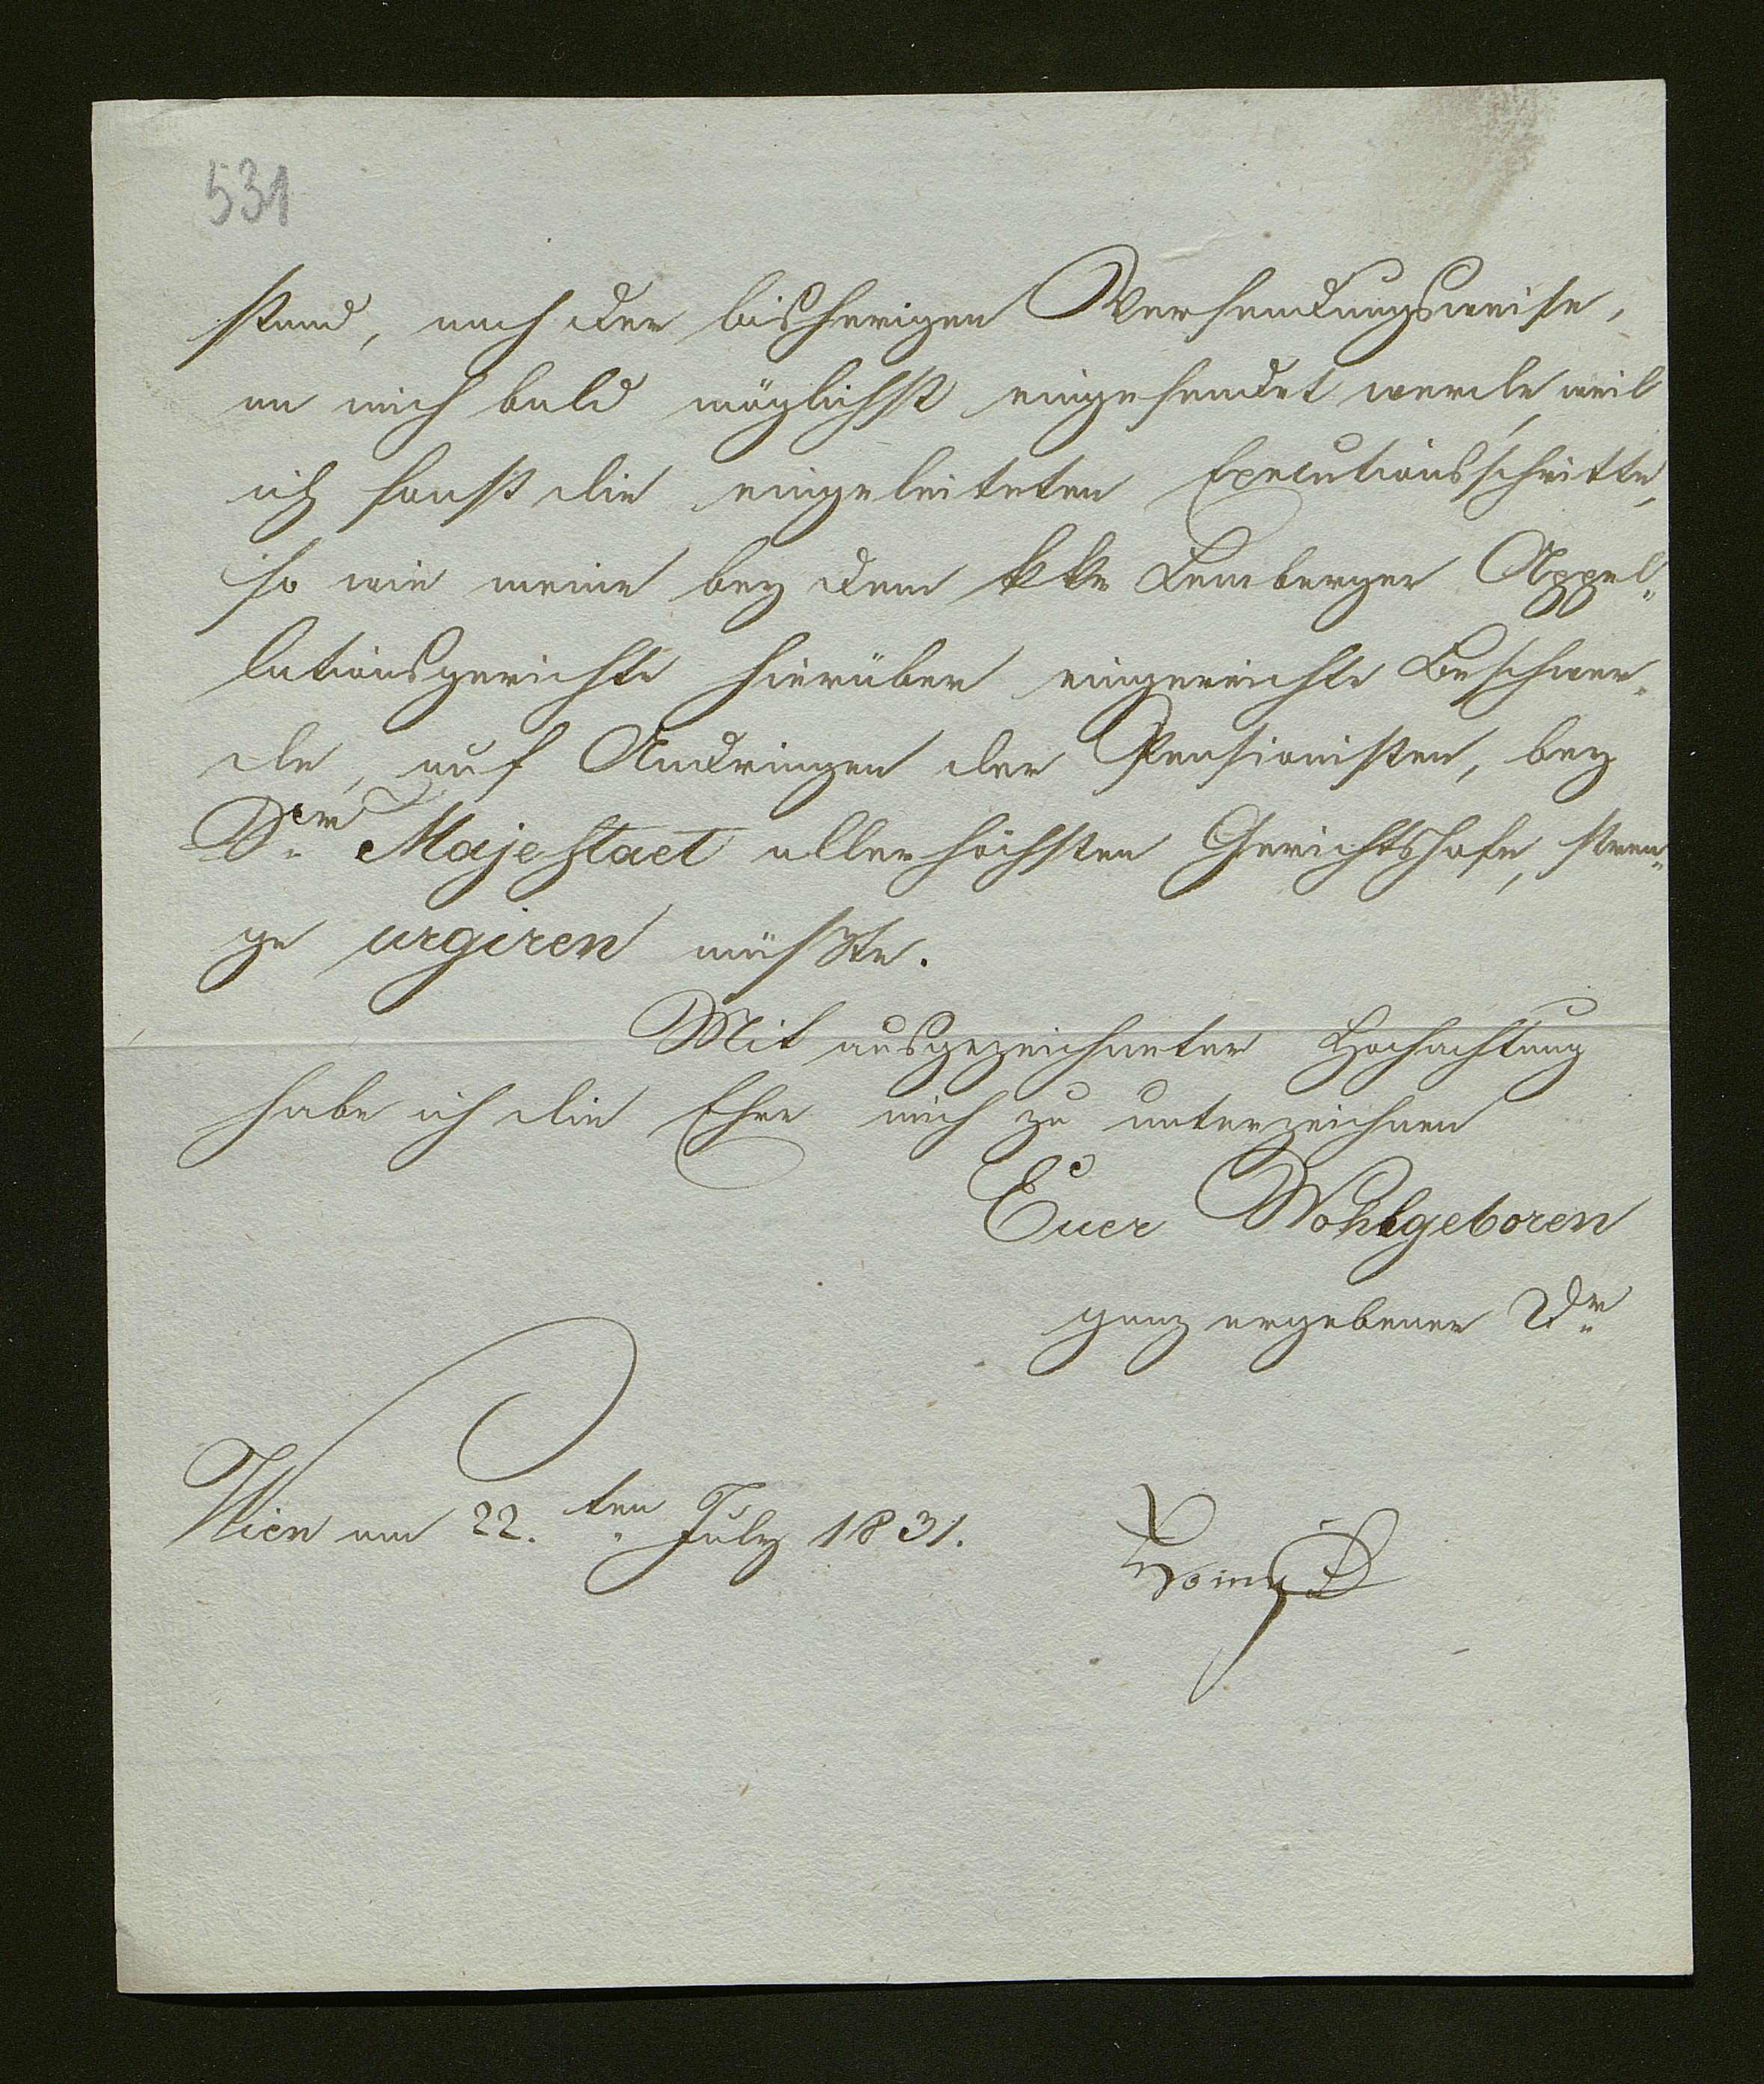 531
stand, nach der bisherigen Versendungsweise,
an mich bald möglichst eingesendet werde, weil
ich sonst die eingeleiteten Executionsschritte,
so wie meine bey dem kk. Lemberger Appel„
lationsgerichte hierüber eingereichte Beschwer„
de, auf Andringen der Pensionisten, bey
Sr. Majestaet allerhöchsten Gerichtshofe, stren„
ge urgiren müßte.
Mit ausgezeichneter Hochachtung
habe ich die Ehre mich zu unterzeichnen
Euer Wohlgeboren
ganz ergebener Dr
Wien am 22.ten July 1831.